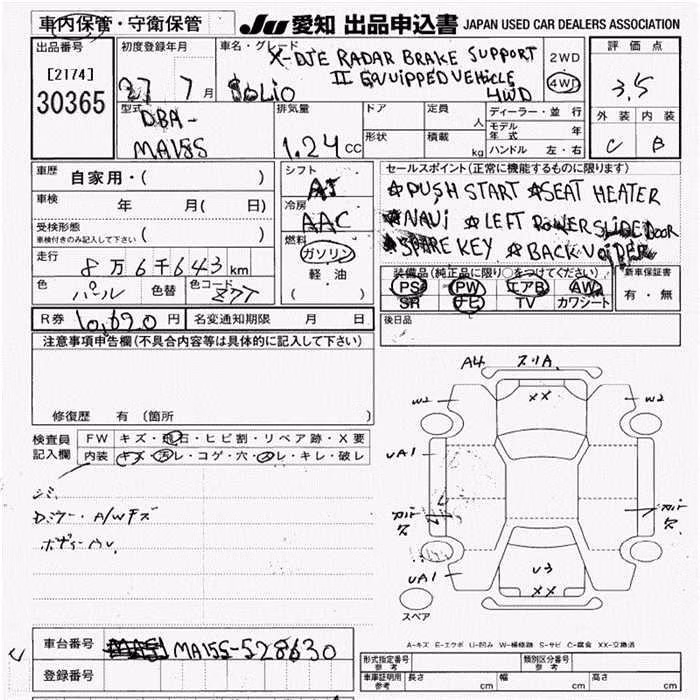 車内保管・守衛保管
JU 愛知 出品申込書 JAPAN USED CAR DEALERS ASSOCIATION
出品番号
[2174]
30365
初度登録年月
27 7 月
車名・グレード
X-DJE RADAR BRAKE SUPPORT
II EQUIPPED VEHICLE
SOLIO 4WD
2WD
4WD
評価点
3.5
外装 内装
C B
型式
DBA-
MA15S
排気量
1.24 CC
ドア
定員 人
形状
積載 kg
ディーラー・並行
モデル年式 年
ハンドル 左・右
車歴 自家用・( )
車検 年 月( 日)
受検形態
車検付きのみ記入して下さい ( )
走行 8万6千643km
色 パール 色替 ( ) 色コード Z7T
シフト
AT
冷房
AAC
燃料
ガソリン
軽油
( )
セールスポイント(正常に機能するものに限ります)
☆PUSH START ☆SEAT HEATER
☆NAVI ☆LEFT POWER SLIDE DOOR
☆SPARE KEY ☆BACK
装備品(純正品に限り○をつけてください)
PS PW エアB AW
SR ナビ TV カワシート
新車保証書
有・無
R券 10,690円 名変通知期限 月 日
後日品
注意事項申告欄(不具合内容等は具体的に記入して下さい)
修復歴 有(箇所
検査員
記入欄
FW キズ・飛石・ヒビ割・リペア跡・X要
内装 キズ・汚レ・コゲ・穴・スレ・キレ・破レ
シミ
Dミラー・A/Wキズ
A4 スリA
W2 XX W2
UA1
カバー欠 カバー欠
UA1 U3
XX
スペア
A-キズ E-エクボ U-凹み W-補修跡 S-サビ C-腐食 XX-交換済
車台番号 MA15S-528630
登録番号
形式指定番号
参考
類別区分番号
参考
車庫証明用
参考
長さ cm 幅 cm 高さ cm